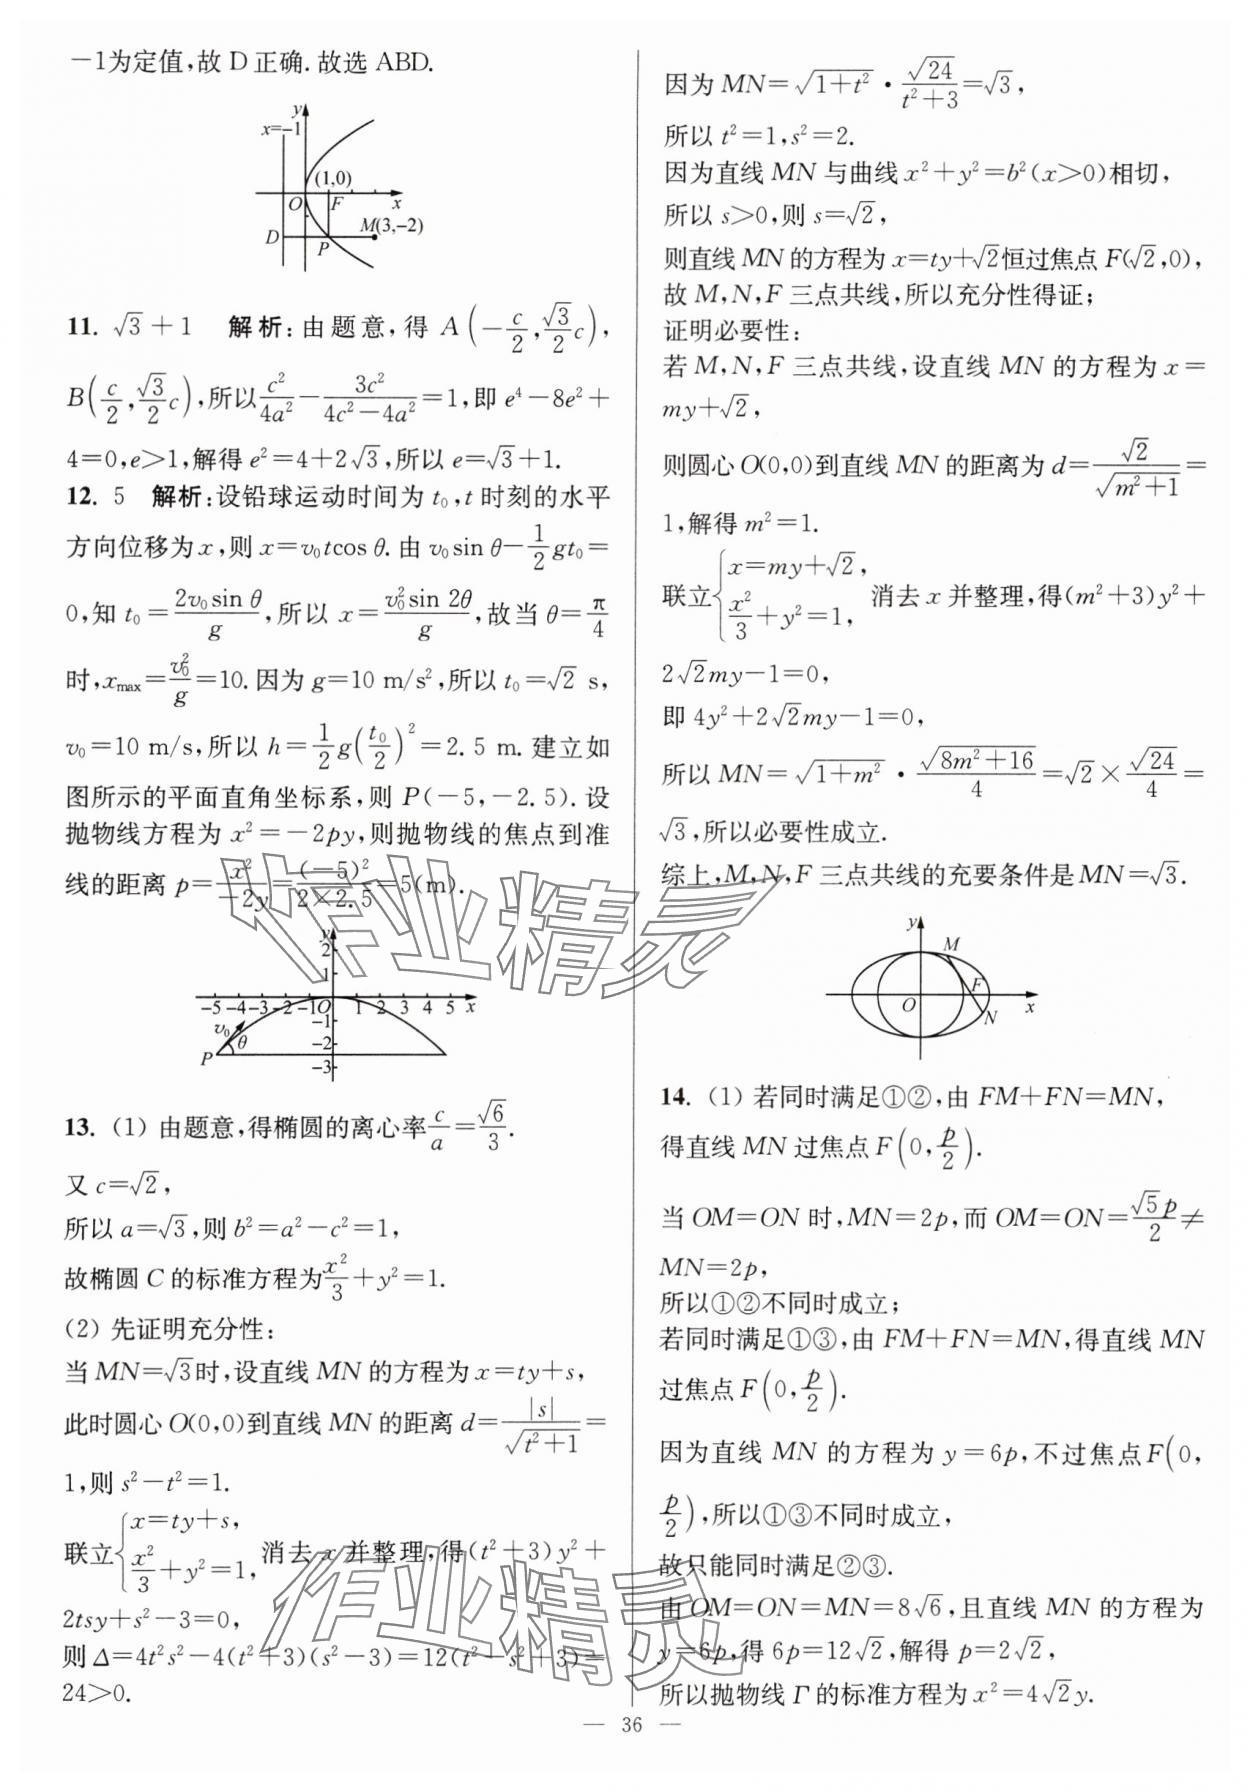 －1为定值,故 D 正确.故选 ABD.
y
x=－1
(1,0)
O F x
M(3,－2)
D P
11. √3＋1 解析:由题意,得 A(－c/2, √3/2 c),
B(c/2, √3/2 c),所以 c²/4a²－3c²/(4c²－4a²)＝1,即 e⁴－8e²＋
4＝0,e＞1,解得 e²＝4＋2√3,所以 e＝√3＋1.
12. 5 解析:设铅球运动时间为 t₀,t 时刻的水平
方向位移为 x,则 x＝v₀tcos θ.由 v₀sin θ－1/2 gt₀＝
0,知 t₀＝2v₀sin θ/g,所以 x＝v₀²sin 2θ/g,故当 θ＝π/4
时,xmax＝v₀²/g＝10.因为 g＝10 m/s²,所以 t₀＝√2 s,
v₀＝10 m/s,所以 h＝1/2 g(t₀/2)²＝2.5 m.建立如
图所示的平面直角坐标系,则 P(－5,－2.5).设
抛物线方程为 x²＝－2py,则抛物线的焦点到准
线的距离 p＝x²/－2y＝(－5)²/(2×2.5)＝5(m).
y
2
1
－5 －4 －3 －2 －1 O 1 2 3 4 5 x
－1
v₀
－2
θ
P
－3
13. (1) 由题意,得椭圆的离心率 c/a＝√6/3.
又 c＝√2,
所以 a＝√3,则 b²＝a²－c²＝1,
故椭圆 C 的标准方程为 x²/3＋y²＝1.
(2) 先证明充分性:
当 MN＝√3时,设直线 MN 的方程为 x＝ty＋s,
此时圆心 O(0,0)到直线 MN 的距离 d＝|s|/√(t²＋1)＝
1,则 s²－t²＝1.
联立{x＝ty＋s, x²/3＋y²＝1, 消去 x 并整理,得(t²＋3)y²＋
2tsy＋s²－3＝0,
则 Δ＝4t²s²－4(t²＋3)(s²－3)＝12(t²－s²＋3)＝
24＞0.
因为 MN＝√(1＋t²)·√24/(t²＋3)＝√3,
所以 t²＝1,s²＝2.
因为直线 MN 与曲线 x²＋y²＝b²(x＞0)相切,
所以 s＞0,则 s＝√2,
则直线 MN 的方程为 x＝ty＋√2恒过焦点 F(√2,0),
故 M,N,F 三点共线,所以充分性得证;
证明必要性:
若 M,N,F 三点共线,设直线 MN 的方程为 x＝
my＋√2,
则圆心 O(0,0)到直线 MN 的距离为 d＝√2/√(m²＋1)＝
1,解得 m²＝1.
联立{x＝my＋√2, x²/3＋y²＝1, 消去 x 并整理,得(m²＋3)y²＋
2√2my－1＝0,
即 4y²＋2√2my－1＝0,
所以 MN＝√(1＋m²)·√(8m²＋16)/4＝√2×√24/4＝
√3,所以必要性成立.
综上,M,N,F 三点共线的充要条件是 MN＝√3.
y
M
F
O N x
14. (1) 若同时满足①②,由 FM＋FN＝MN,
得直线 MN 过焦点 F(0, p/2).
当 OM＝ON 时,MN＝2p,而 OM＝ON＝√5p/2≠
MN＝2p,
所以①②不同时成立;
若同时满足①③,由 FM＋FN＝MN,得直线 MN
过焦点 F(0, p/2).
因为直线 MN 的方程为 y＝6p,不过焦点 F(0,
p/2),所以①③不同时成立,
故只能同时满足②③.
由 OM＝ON＝MN＝8√6,且直线 MN 的方程为
y＝6p,得 6p＝12√2,解得 p＝2√2,
所以抛物线 Γ 的标准方程为 x²＝4√2y.
作业精灵
作业精灵
— 36 —